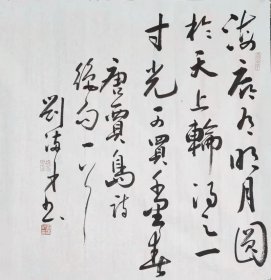 海底有明月圓
於天上輪得之一
寸光可買千里春
唐賈島詩
絕句一首
劉才書